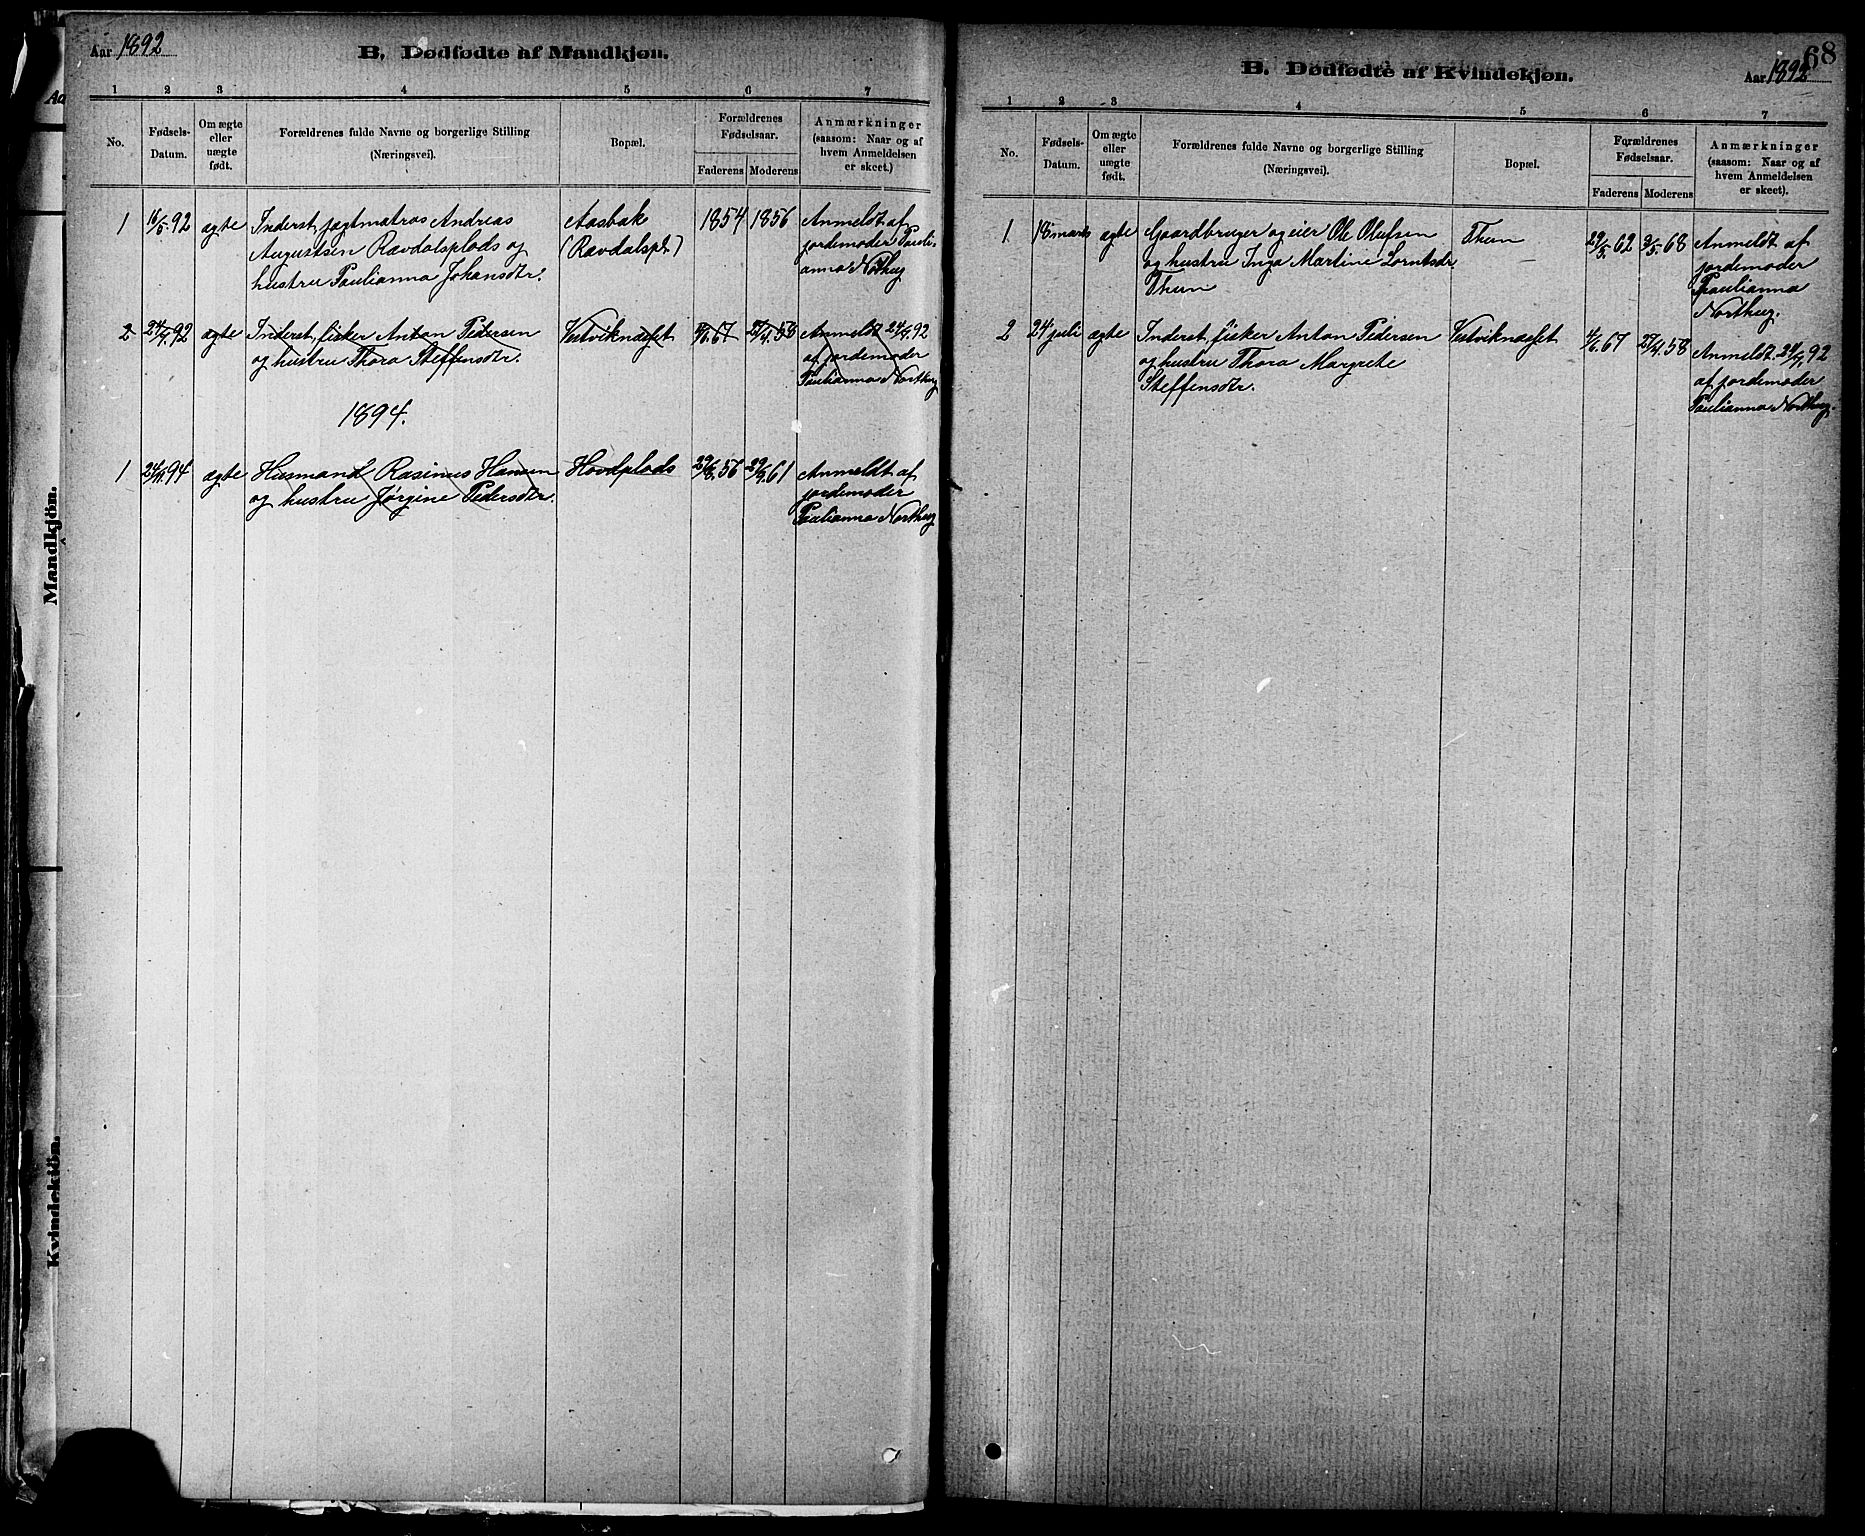 Aar 1892
B. Dødfødte af Mandkjøn.
1 2 3 4 5 6 7
No.
Fødsels-
Datum.
Om ægte
eller
uægte
født.
Forældrenes fulde Navne og borgerlige Stilling
(Næringsvei).
Bopæl.
Forældrenes
Fødselsaar.
Faderens Moderens
Anmærkninger
(saasom: Naar og af
hvem Anmeldelsen
er skeet.)
1 16/5 92 ægte Inderst, jagtmatros Andreas Aasbak 1854 1856 Anmeldt af
Augustsen Ravdalsplads og (Ravdalspl.) jordemoder Pauli-
hustru Paulianna Johansdtr. anna Northug
2 24/7 92 ægte Inderst, fisker Anton Pedersen Vestviknæsset 4/6 67 27/4 58 Anmeldt 24/9 92
og hustru Thora Steffensdtr. af jordemoder
Paulianna Northug
1894.
1 24/4 94 ægte Husmand Rasinus Hansen Hovdplads 29/8 56 29/9 61 Anmeldt af
og hustru Jørgine Pedersdtr. jordemoder
Paulianna Northug
Mandkjön.
Kvindekjön.
68
B. Dødfødte af Kvindekjøn.
Aar 1892
1 2 3 4 5 6 7
No.
Fødsels-
Datum.
Om ægte
eller
uægte
født.
Forældrenes fulde Navne og borgerlige Stilling
(Næringsvei).
Bopæl.
Forældrenes
Fødselsaar.
Faderens Moderens
Anmærkninger
(saasom: Naar og af
hvem Anmeldelsen
er skeet).
1 18 marts ægte Gaardbruger og eier Ole Olufsen Thun 29/5 62 3/5 68 Anmeldt af
og hustru Inga Martine Lorntsdr. jordemoder
Thun Paulianna
Northug.
2 24 juli ægte Inderst, fisker Anton Pedersen Vestviknæsset 4/6 67 27/4 58 Anmeldt 24/9 92
og hustru Thora Margrete af jordemoder
Steffensdtr. Paulianna Northug.